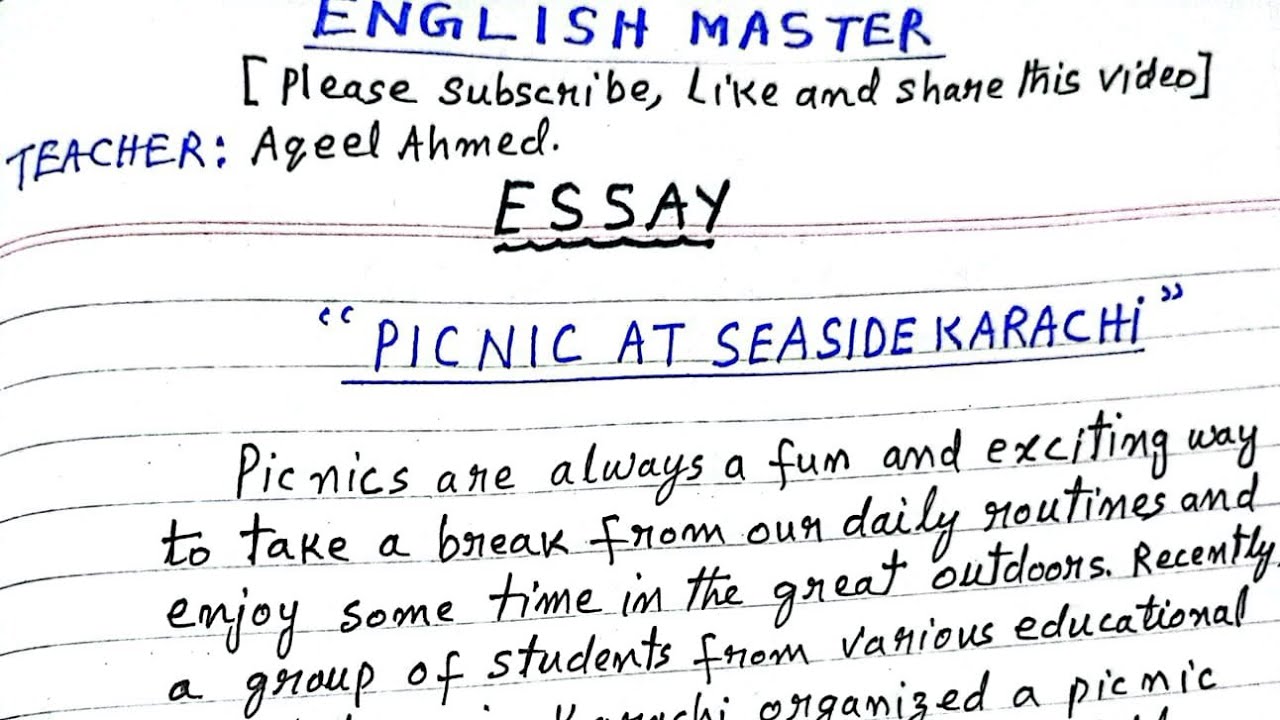 ENGLISH MASTER
[Please subscribe, Like and share this video]
TEACHER: Aqeel Ahmed.
ESSAY
“PICNIC AT SEASIDE KARACHi”
Picnics are always a fun and exciting way
to take a break from our daily routines and
enjoy some time in the great outdoors. Recently,
a group of students from various educational
Karachi organized a picnic